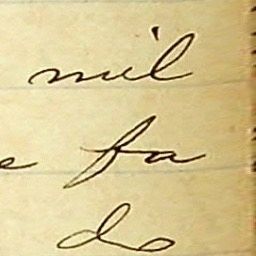 mil
e fa
do